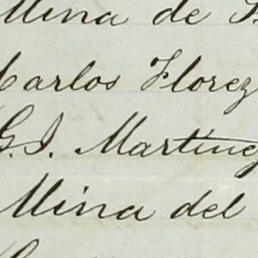 Mina de
Carlos Florez
G. I. Martinez
Mina del